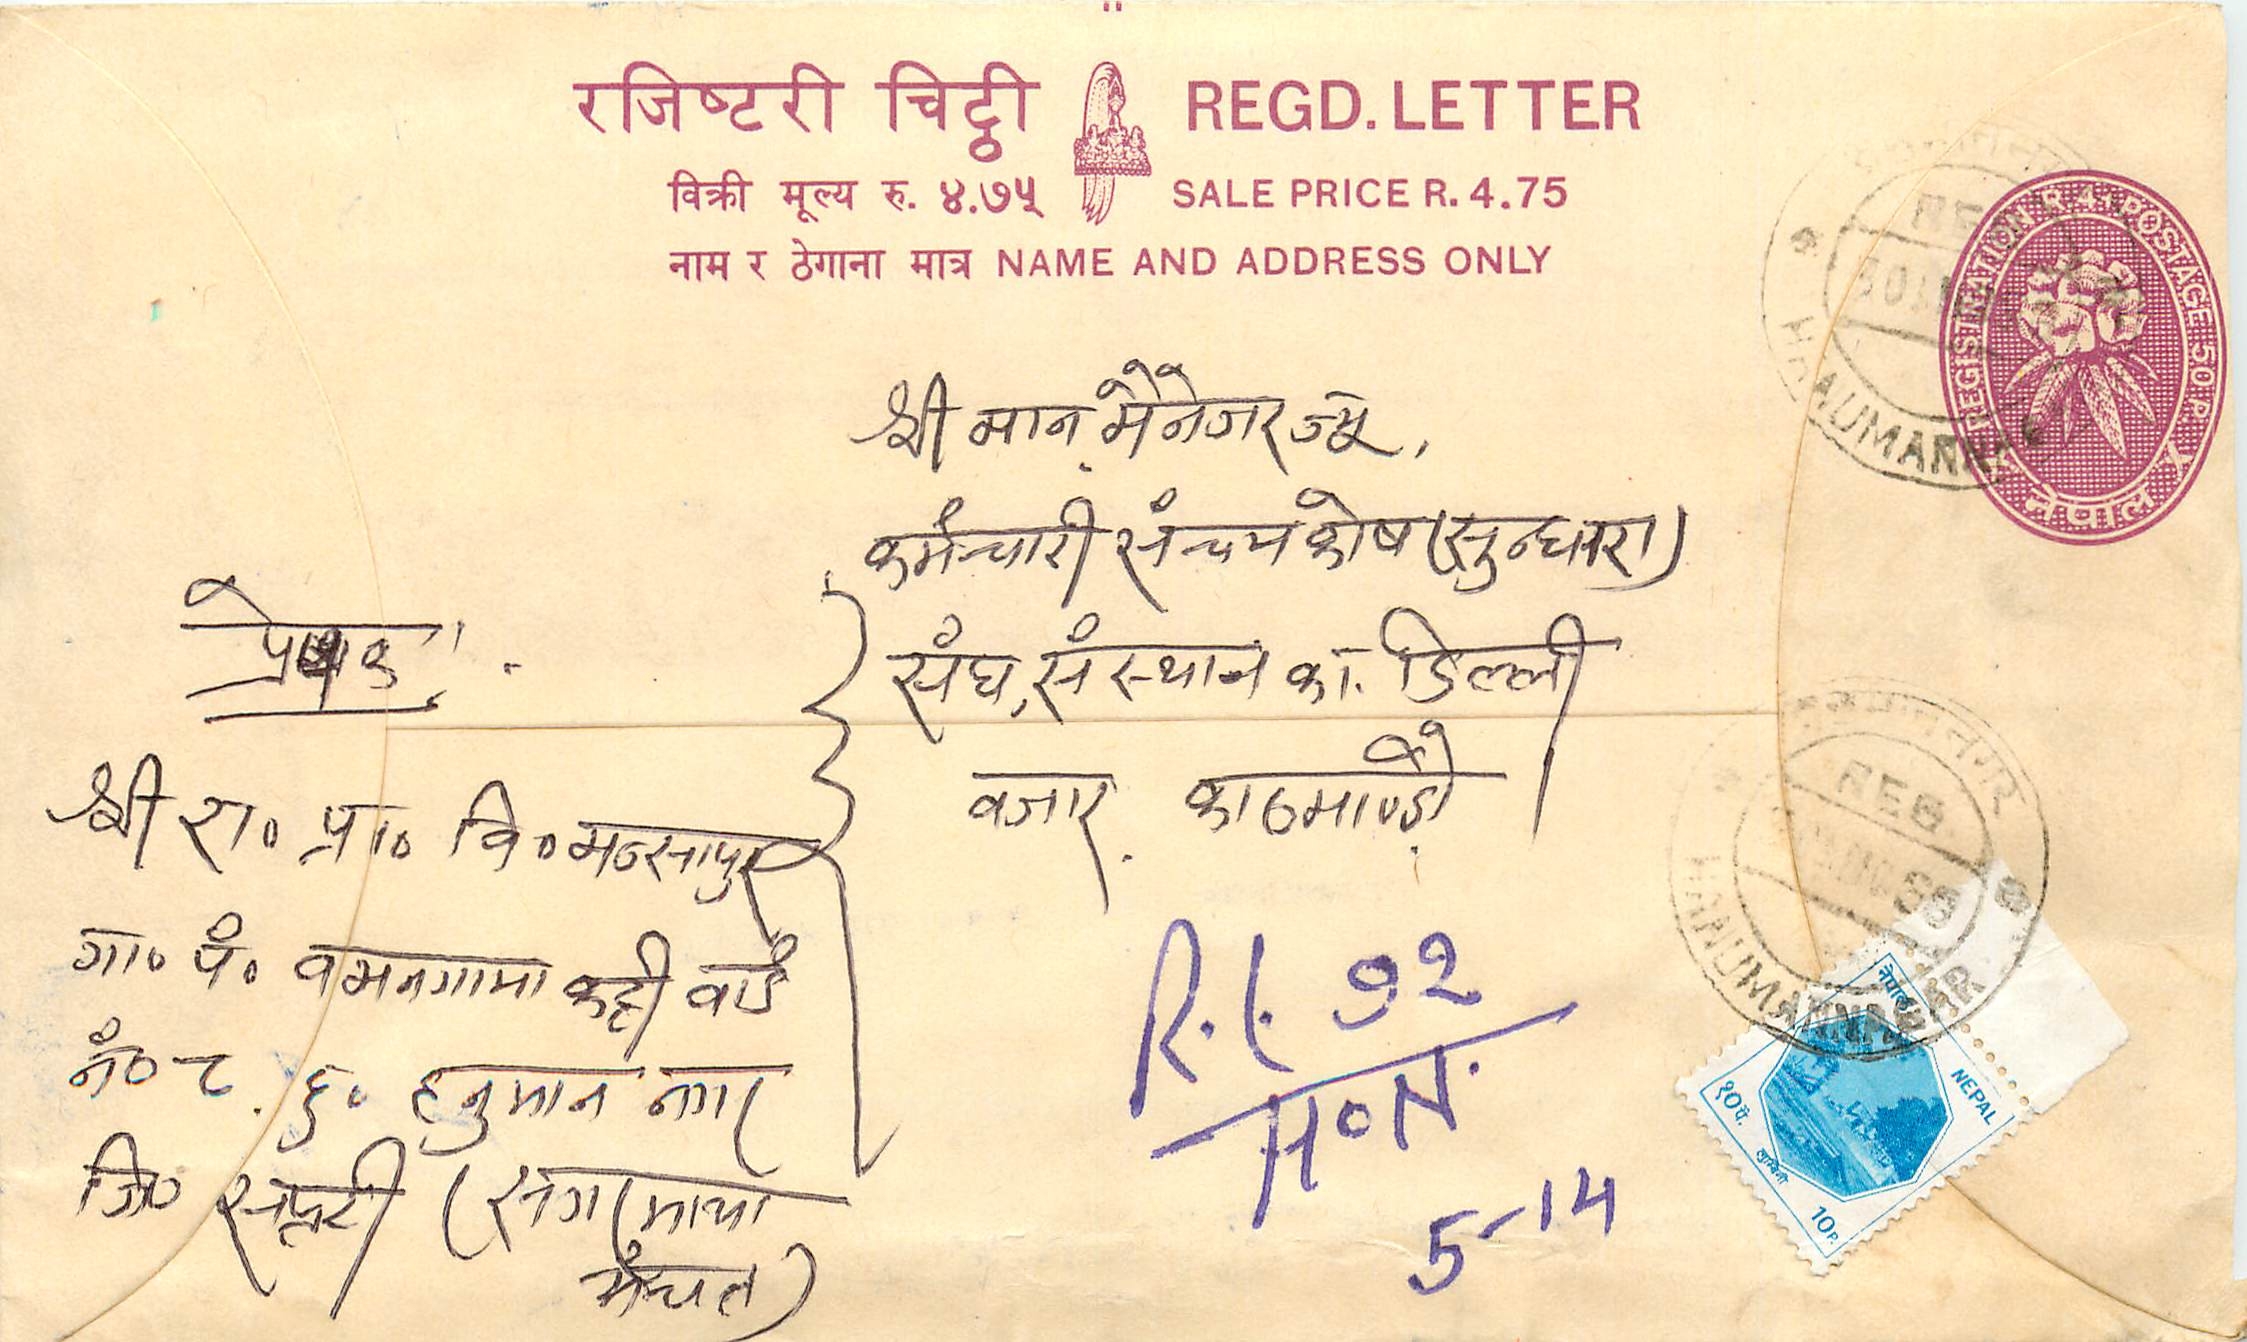 रजिष्टरी चिट्ठी REGD. LETTER
विक्री मूल्य रु. ४.७५ SALE PRICE R. 4.75
नाम र ठेगाना मात्र NAME AND ADDRESS ONLY
REGISTRATION R. 4 POSTAGE 50 P.
नेपाल
REG
HANUMANNAGAR
श्री मान् मैनेजर ज्यू,
कर्मचारी संचय कोष (सुन्धारा)
संघ, संस्थान का. डिल्ली
वजार, काठमाण्डौ
प्रेषक
श्री रा० प्रा० वि०
गा० पं० वमनगामा कट्टी वार्ड
नं० ८. हु० हनुमान नगर
जि० सप्तरी (सगरमाथा
अंचल)
R.L. 92
H०N.
5-14
हनुमाननगर
REG
HANUMANNAGAR
नेपाल
NEPAL
१० पै.
लुम्बिनी
10 P.